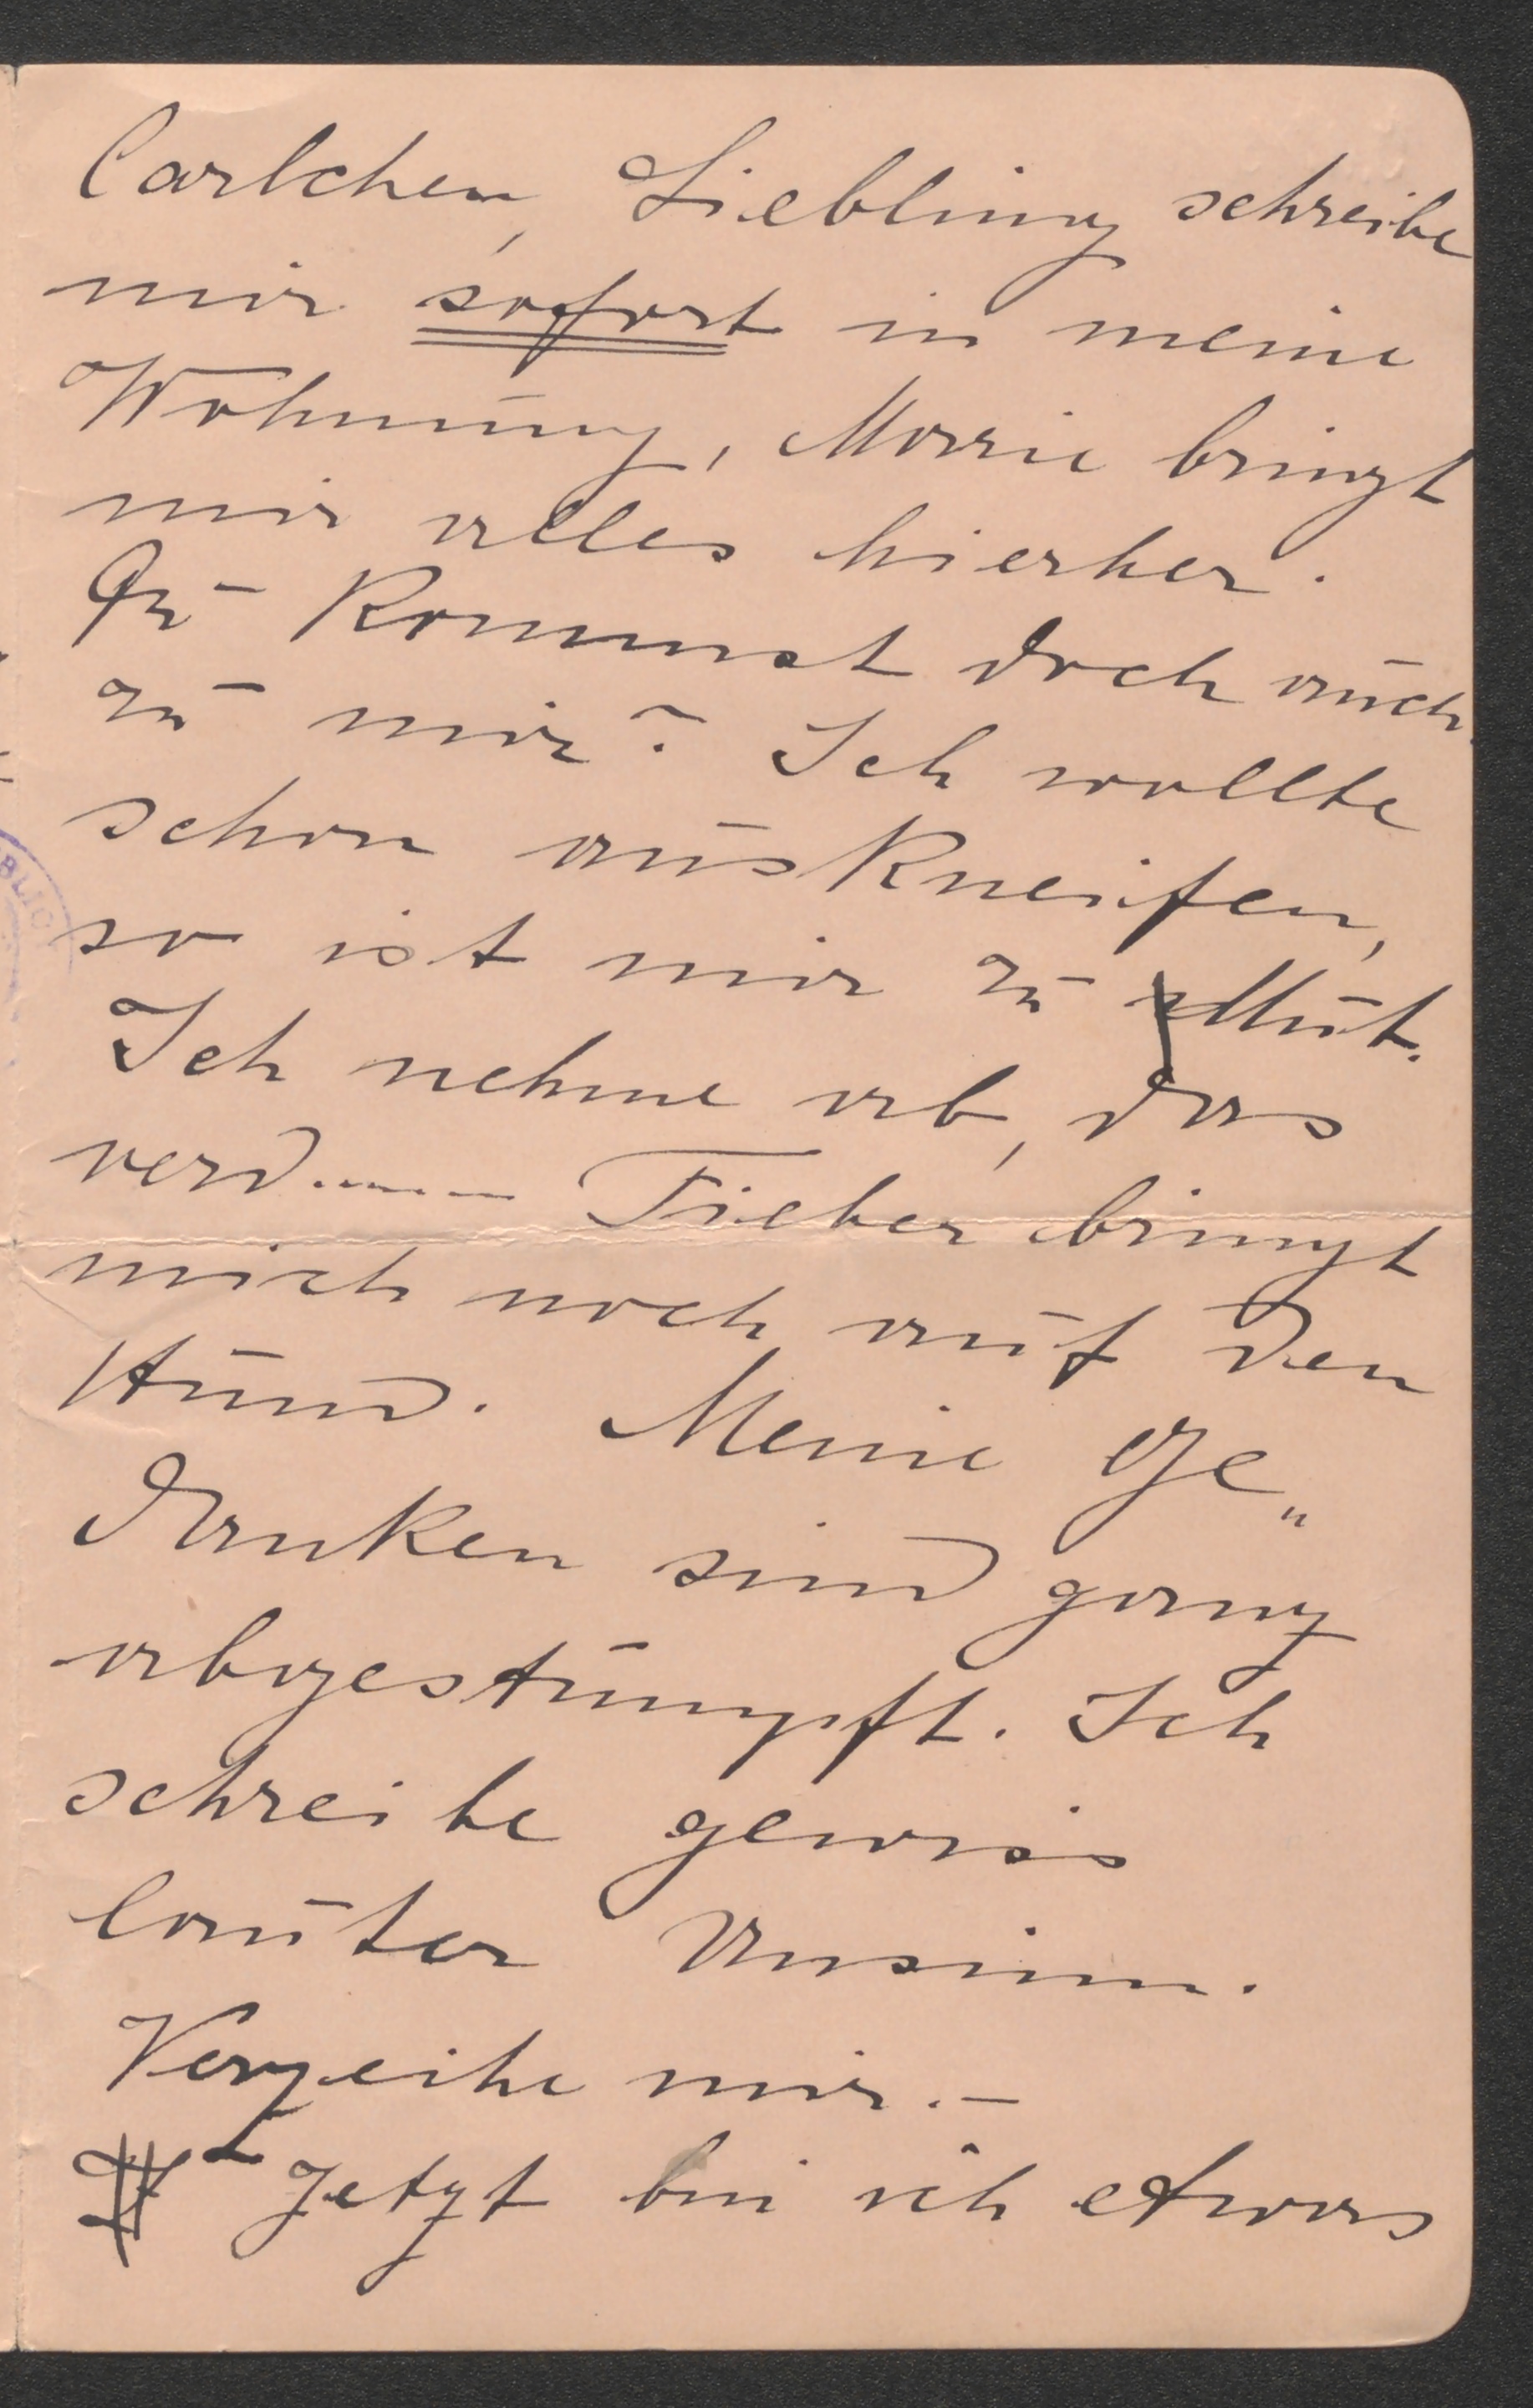 Carlchen, Liebling schreibe
mir sofort in meine
Wohnung, Marie bringt
mir alles hierher.
Du kommst doch auch
zu mir? Ich wollte
schon auskneifen,
so ist mir zu Mut.
Ich nehme ab, das
verd.---- Fieber bringt
mich noch auf den
Hund. Meine Ge„
danken sind ganz
abgestumpft. Ich
schreibe gewiss
lauter Unsinn.
Verzeihe mir.–
Jetzt bin ich etwas